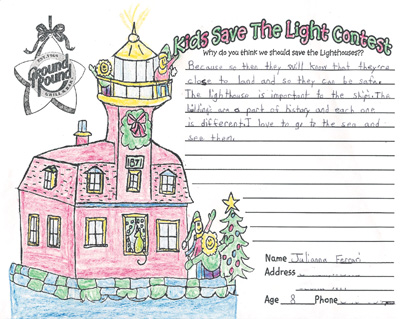 EST. 1969
Ground Round
GRILL & BAR
Kids Save The Light Contest
Why do you think we should save the Lighthouses??
Because so then they will know that they're
close to land and so they can be safe.
The lighthouse is important to the ships. The
are a part of history and each one
is different. I love to go to the sea and
see them.
1871
Name Julianna Ferrari
Address
Age 8 Phone